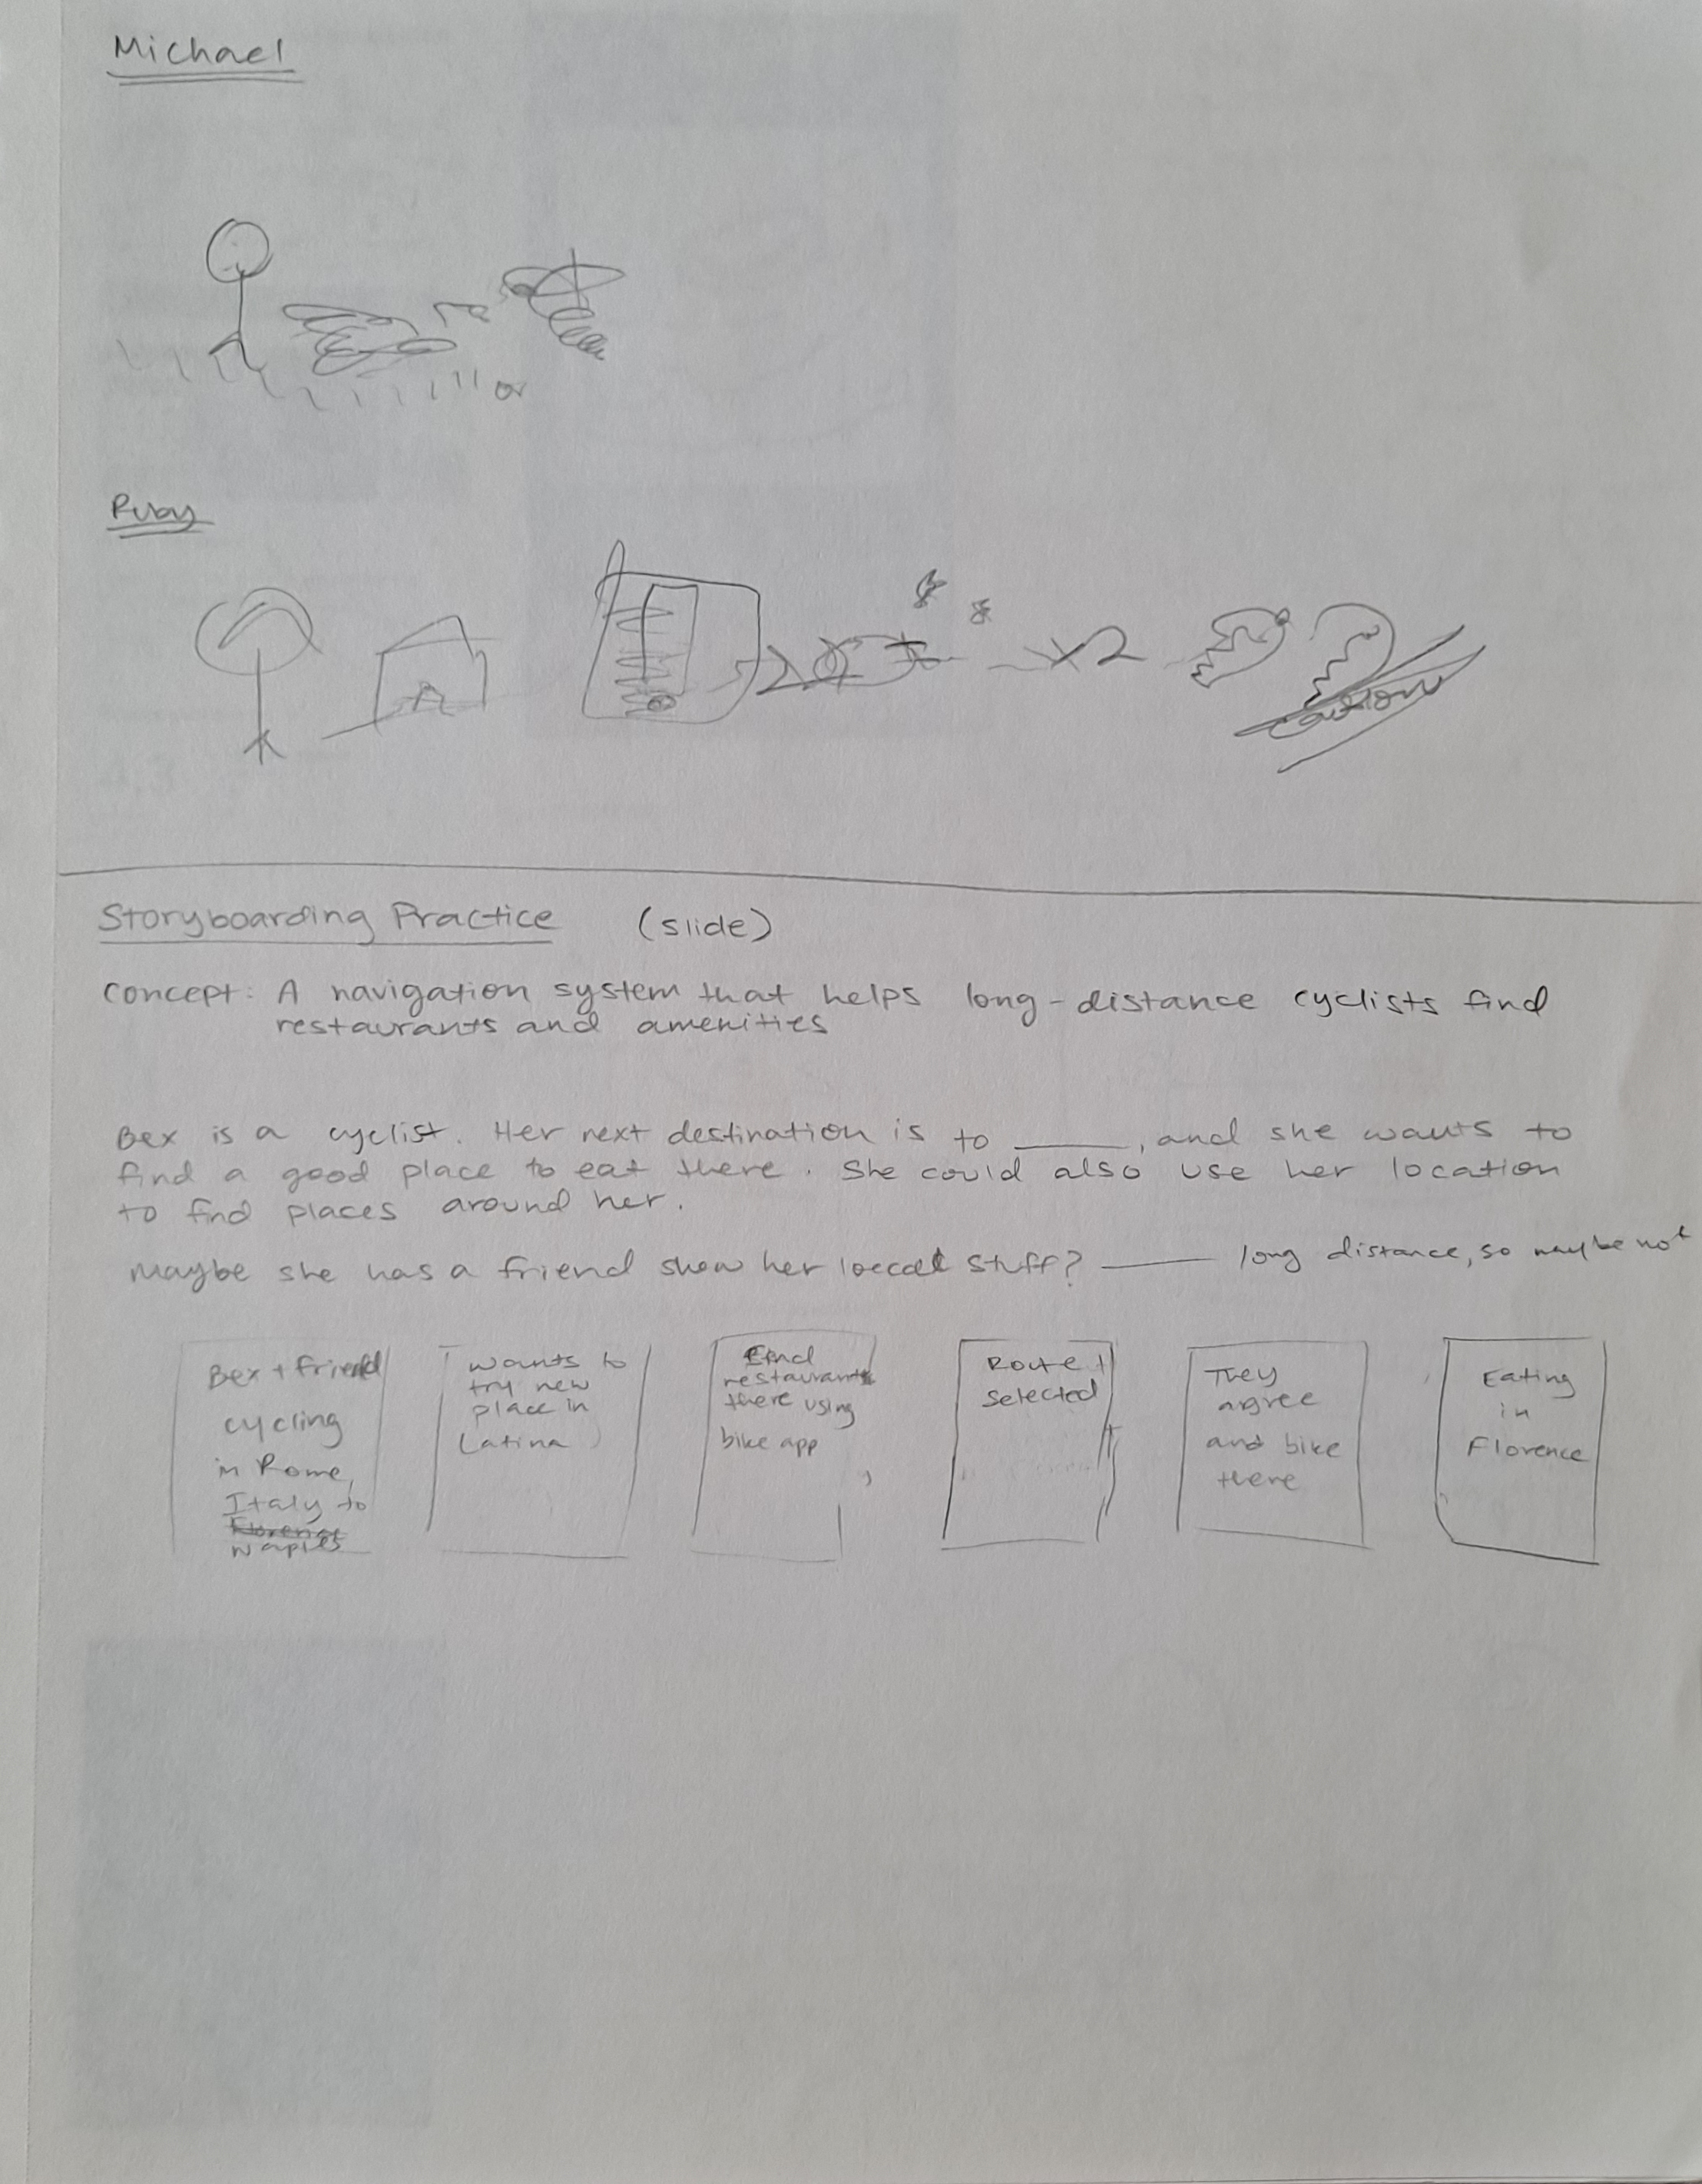 Michael
Ruby
x2
caution
Storyboarding Practice (slide)
Concept: A navigation system that helps long-distance cyclists find
restaurants and amenities
Bex is a cyclist. Her next destination is to ____, and she wants to
find a good place to eat there. She could also use her location
to find places around her.
Maybe she has a friend show her local stuff? —— long distance, so maybe not
Bex + friend
cycling
in Rome,
Italy to
Florence
Naples
wants to
try new
place in
Latina
Find
restaurants
there using
bike app
Route
selected
They
agree
and bike
there
Eating
in
Florence